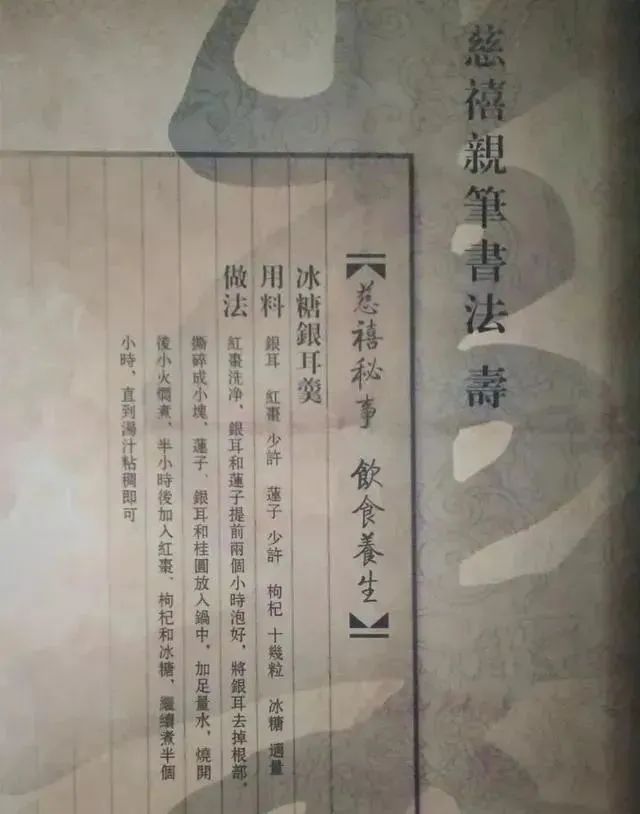 慈禧親筆書法 壽
【慈禧秘事 飲食養生】
冰糖銀耳羹
用料 銀耳 紅棗 少許 蓮子 少許 枸杞 十幾粒 冰糖 適量
做法 紅棗洗净、銀耳和蓮子提前兩個小時泡好,將銀耳去掉根部,
撕碎成小塊、蓮子、銀耳和桂圓放入鍋中,加足量水,燒開
後小火燜煮,半小時後加入紅棗、枸杞和冰糖,繼續煮半個
小時,直到湯汁粘稠即可